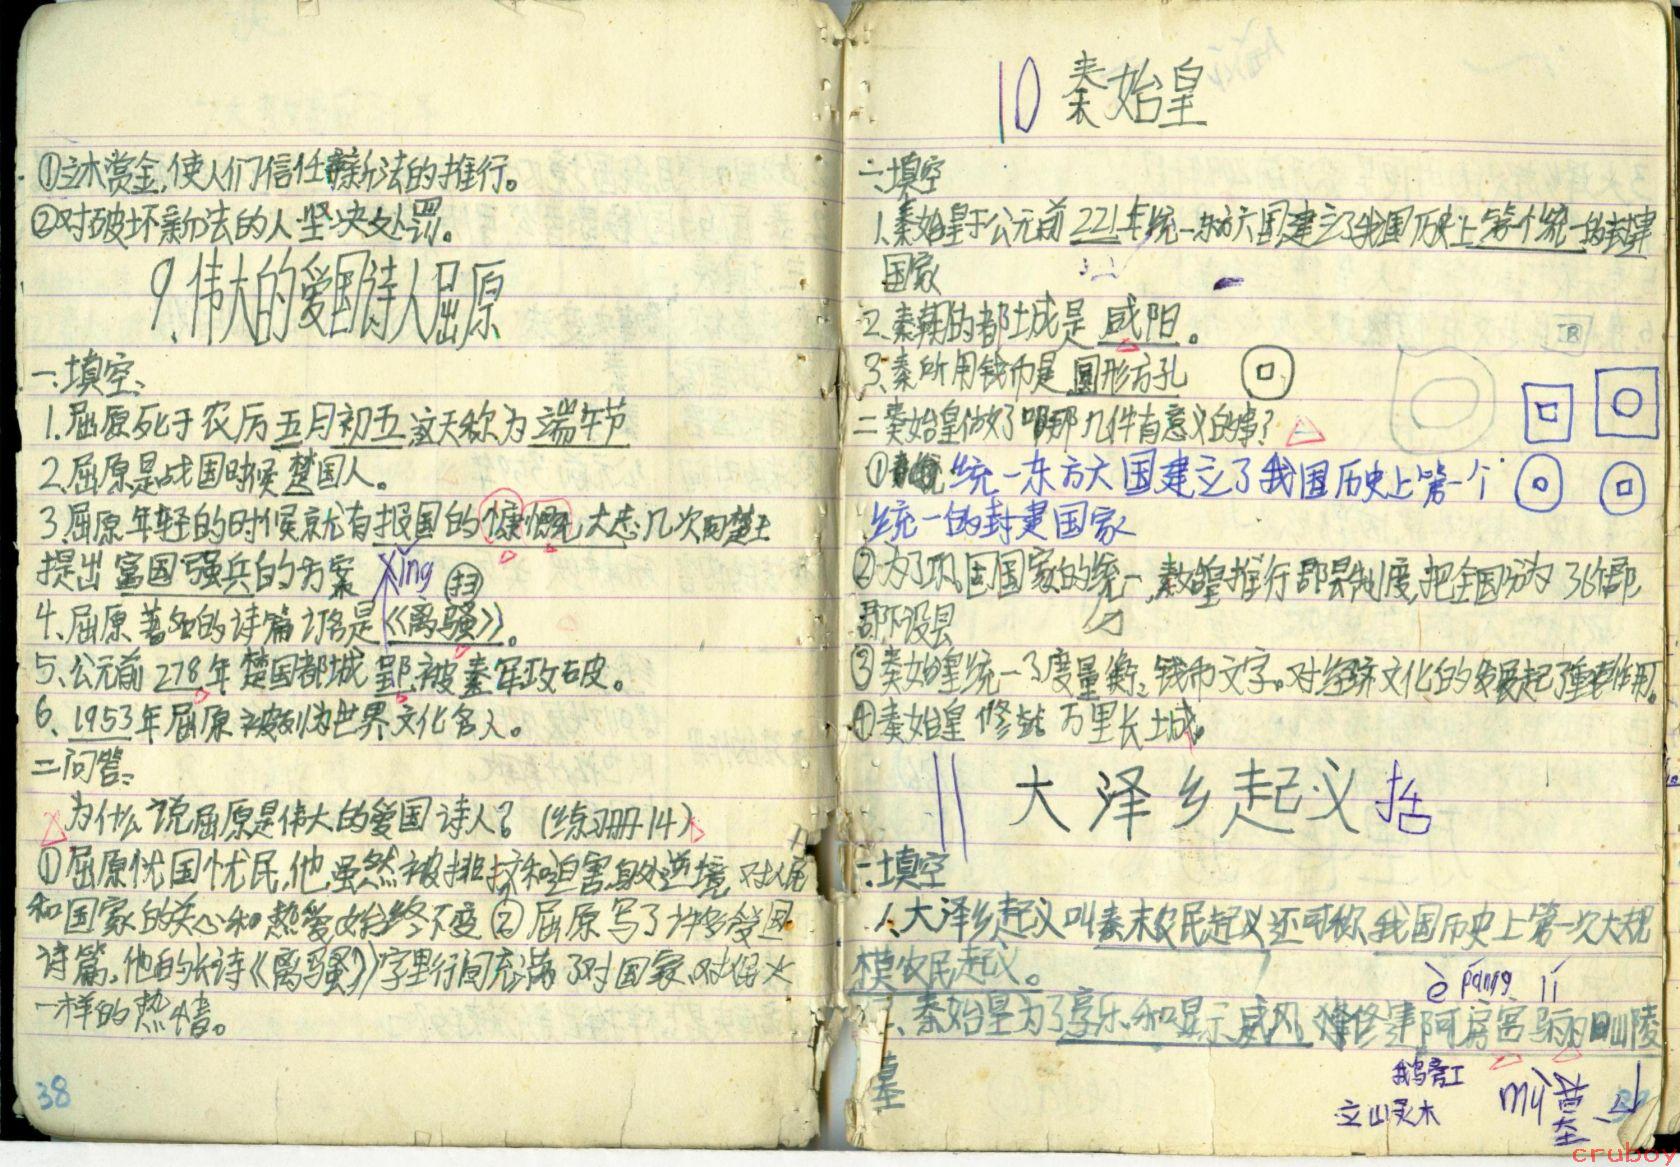 ①立木赏金,使人们信任新法的推行。
②对破坏新法的人坚决处罚。
9.伟大的爱国诗人屈原
一.填空、
1.屈原死于农历五月初五这天称为端午节
2.屈原是战国时候楚国人。
3.屈原年轻的时候就有报国的慷慨大志几次向楚王
提出富国强兵的方案 xíng
4、屈原著名的诗篇 是《离骚》。 扫
5、公元前278年楚国都城郢被秦军攻破。
6、1953年屈原被列为世界文化名人。
二问答:
为什么说屈原是伟大的爱国诗人?(练习册14)
①屈原忧国忧民,他虽然被排挤和迫害,身处逆境,对人民
和国家的关心和热爱始终不变②屈原写了许多爱国
诗篇,他的长诗《离骚》字里行间充满了对国家、对
一样的热情。
38
10 秦始皇
一、填空
1.秦始皇于公元前221年统一东方六国建立了我国历史上第一个统一的封建
国家
2.秦朝的都城是咸阳。
3.秦所用钱币是圆形方孔
二秦始皇做了哪几件有意义的事?
① 统一东方六国建立了我国历史上第一个
统一的封建国家
②为了巩固国家的统一,秦始皇推行郡县制度,把全国分为36郡,
郡下设县
③秦始皇统一了度量衡、钱币文字。对经济文化的发展起了重要作用。
④秦始皇修筑万里长城。
11 大泽乡起义 括
一.填空
1.大泽乡起义叫秦末农民起义还可称我国历史上第一次大规
模农民起义。
ē páng lí
二、秦始皇为了享乐和显示威风 修建阿房宫骊山陵
墓
mù 墓
cruboy